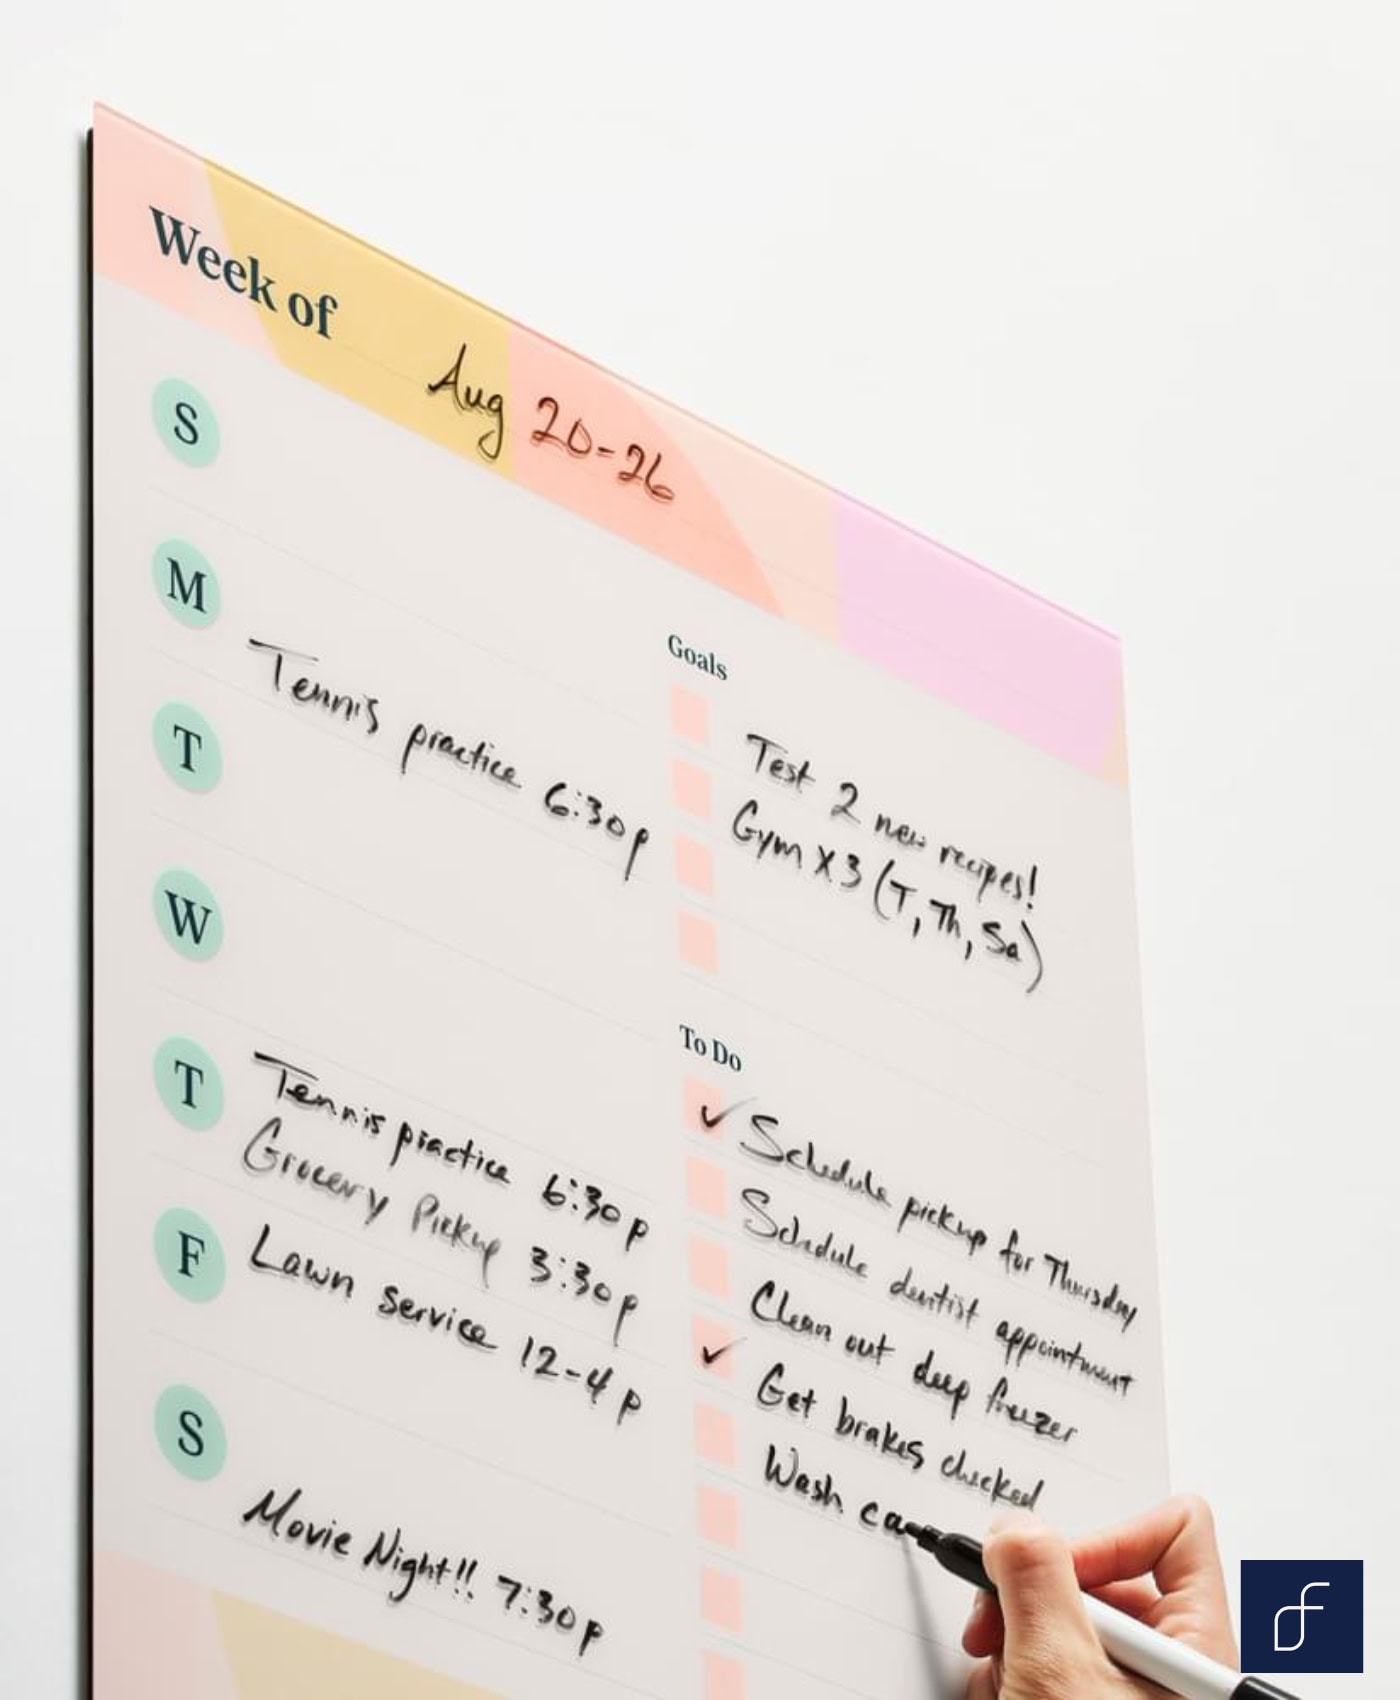 Week of Aug 20-26
S
M
Tennis practice 6:30p
T
W
T
Tennis practice 6:30p
Grocery Pickup 3:30p
F
Lawn service 12-4p
S
Movie Night!! 7:30p
Goals
Test 2 new recipes!
Gym X3 (T, Th, Sa)
To Do
✓ Schedule pickup for Thursday
Schedule dentist appointment
Clean out deep freezer
✓ Get brakes checked
Wash ca